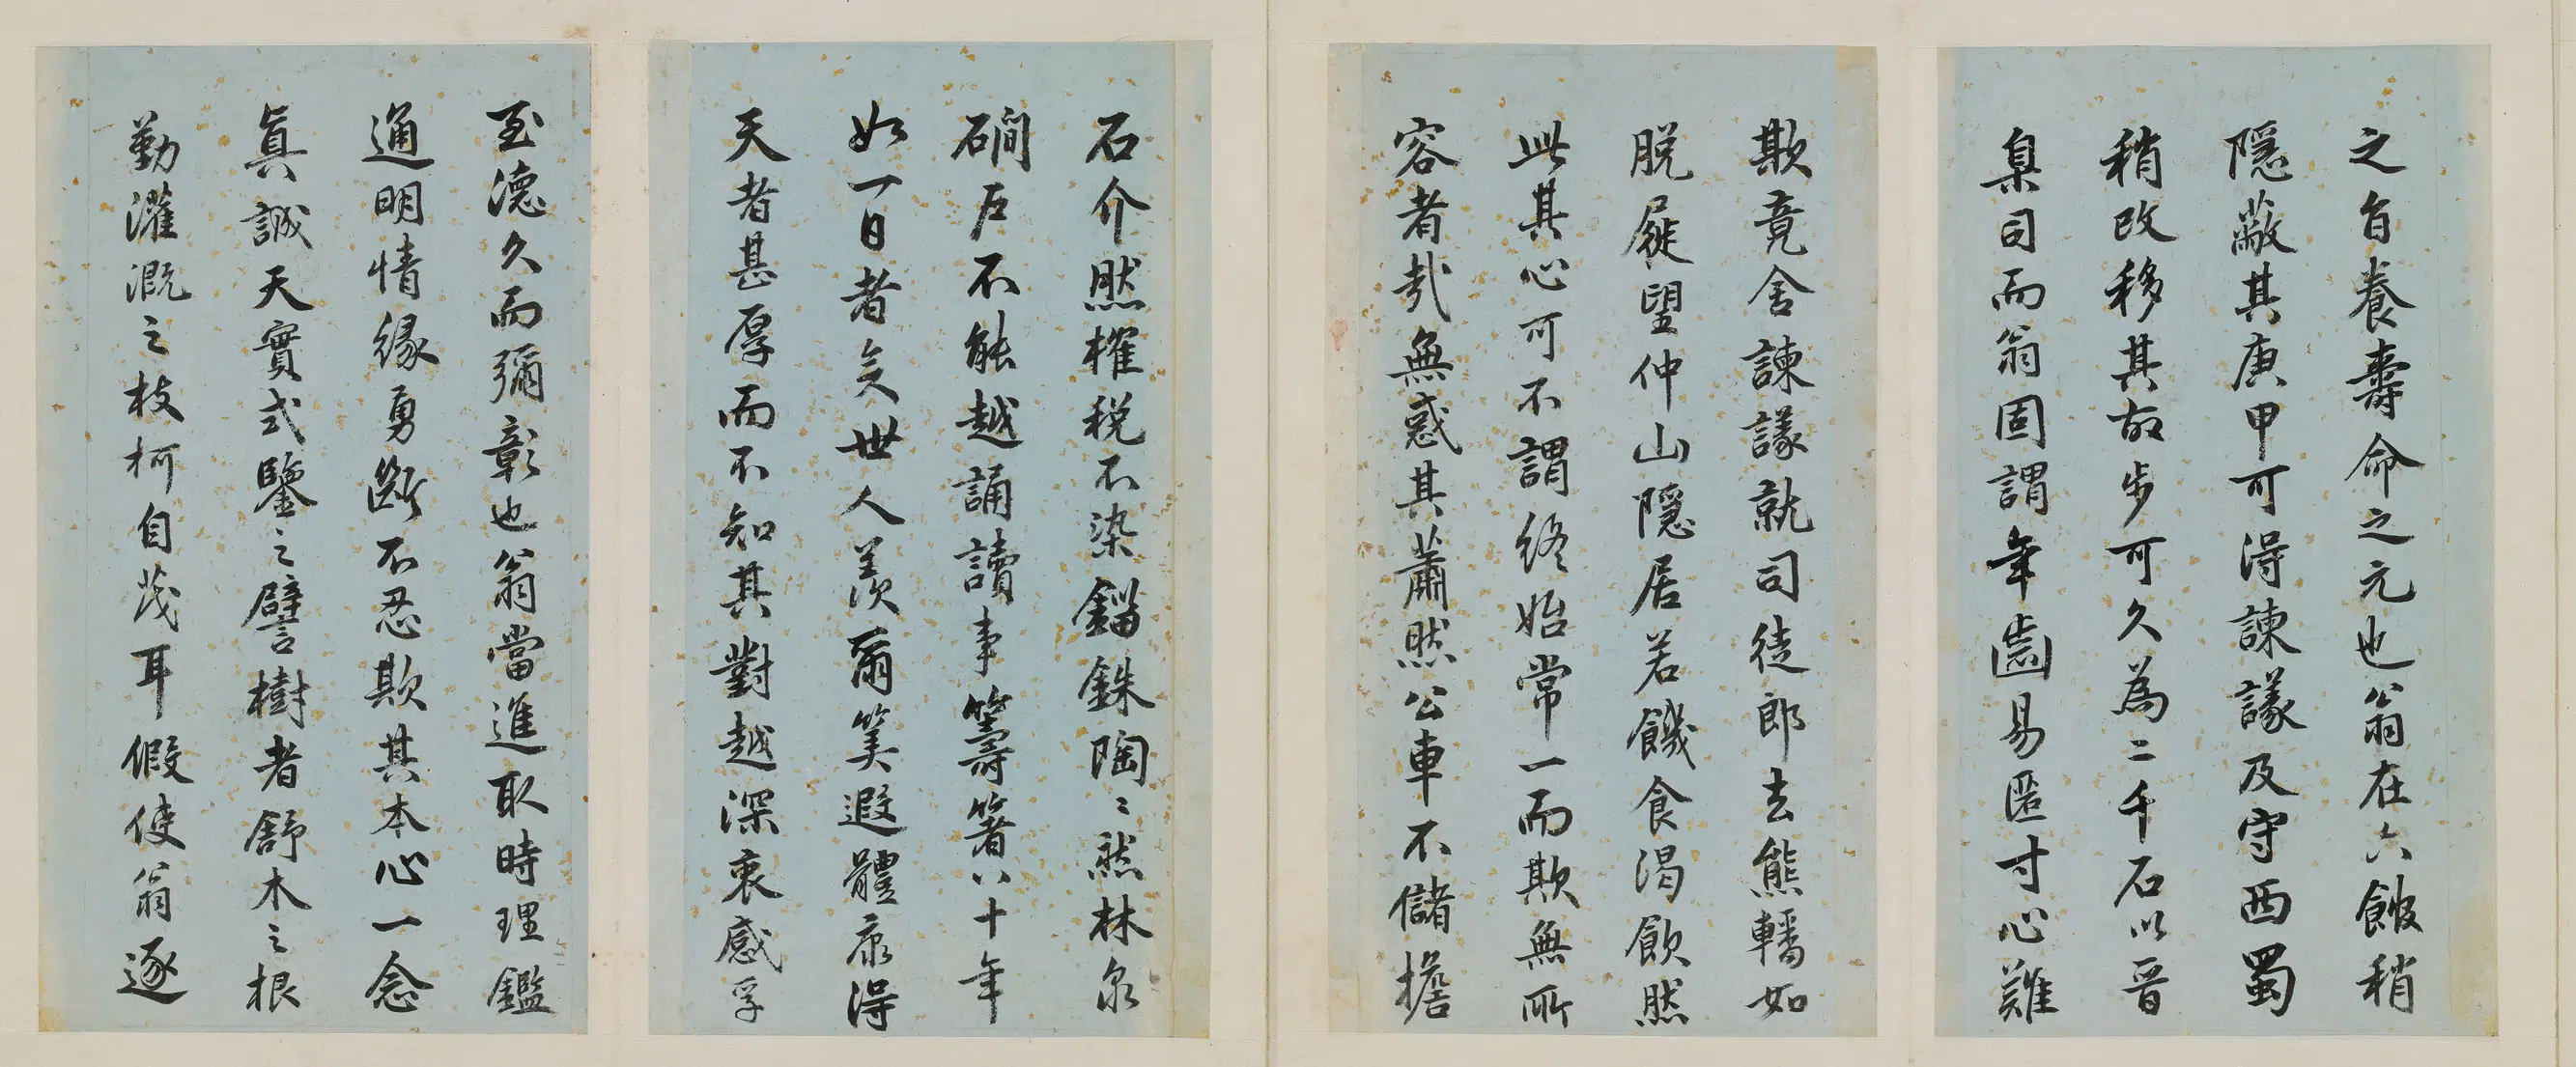 之自養壽命之元也翁在六館稍
隱蔽其庚甲可得諫議及守西蜀
稍改移其故步可久為二千石以晉
臬司而翁固謂年齒易匿寸心難
欺竟舍諫議就司徒郎去熊轓如
脫屣望仲山隱居若饑食渴飲然
此其心可不謂終始常一而欺無所
容者哉無惑其蕭然公車不儲擔
石介然榷稅不染錙銖陶〻然林泉
磵戶不能越誦讀事籌箸八十年
如一日者矣世人羨爾筭遐體康得
天者甚厚而不知其對越深衷感孚
至德久而彌彰也翁當進取時理鑑
通明情緣勇斷不忍欺其本心一念
真誠天實式鑒之譬樹者舒木之根
勤灌溉之枝柯自茂耳假使翁逐